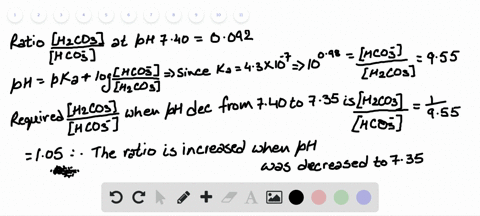 Ratio [H2CO3]/[HCO3-] at pH 7.40 = 0.092
pH = pKa + log [HCO3-]/[H2CO3] ⇒ since Ka = 4.3×10^-7 ⇒ 10^0.98 = [HCO3-]/[H2CO3] = 9.55
Required [H2CO3]/[HCO3-] when pH dec from 7.40 to 7.35 is [H2CO3]/[HCO3-] = 1/9.55
= 1.05 ∴ The ratio is increased when pH
was decreased to 7.35